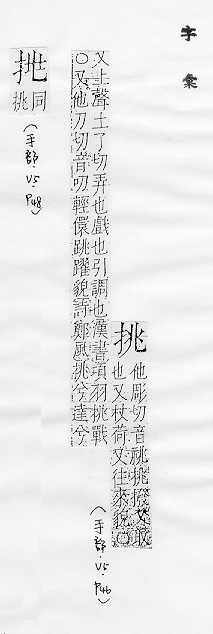 字彙
挑
他彫切音祧挑撥又取
也又杖荷又往來貌○
又上聲土了切弄也戲也引調也漢書項羽挑戰
○又他刀切音叨輕儇跳躍貌詩鄭風挑兮達兮
(手部.V5.P46)
挑
同
挑
(手部.V5.P48)